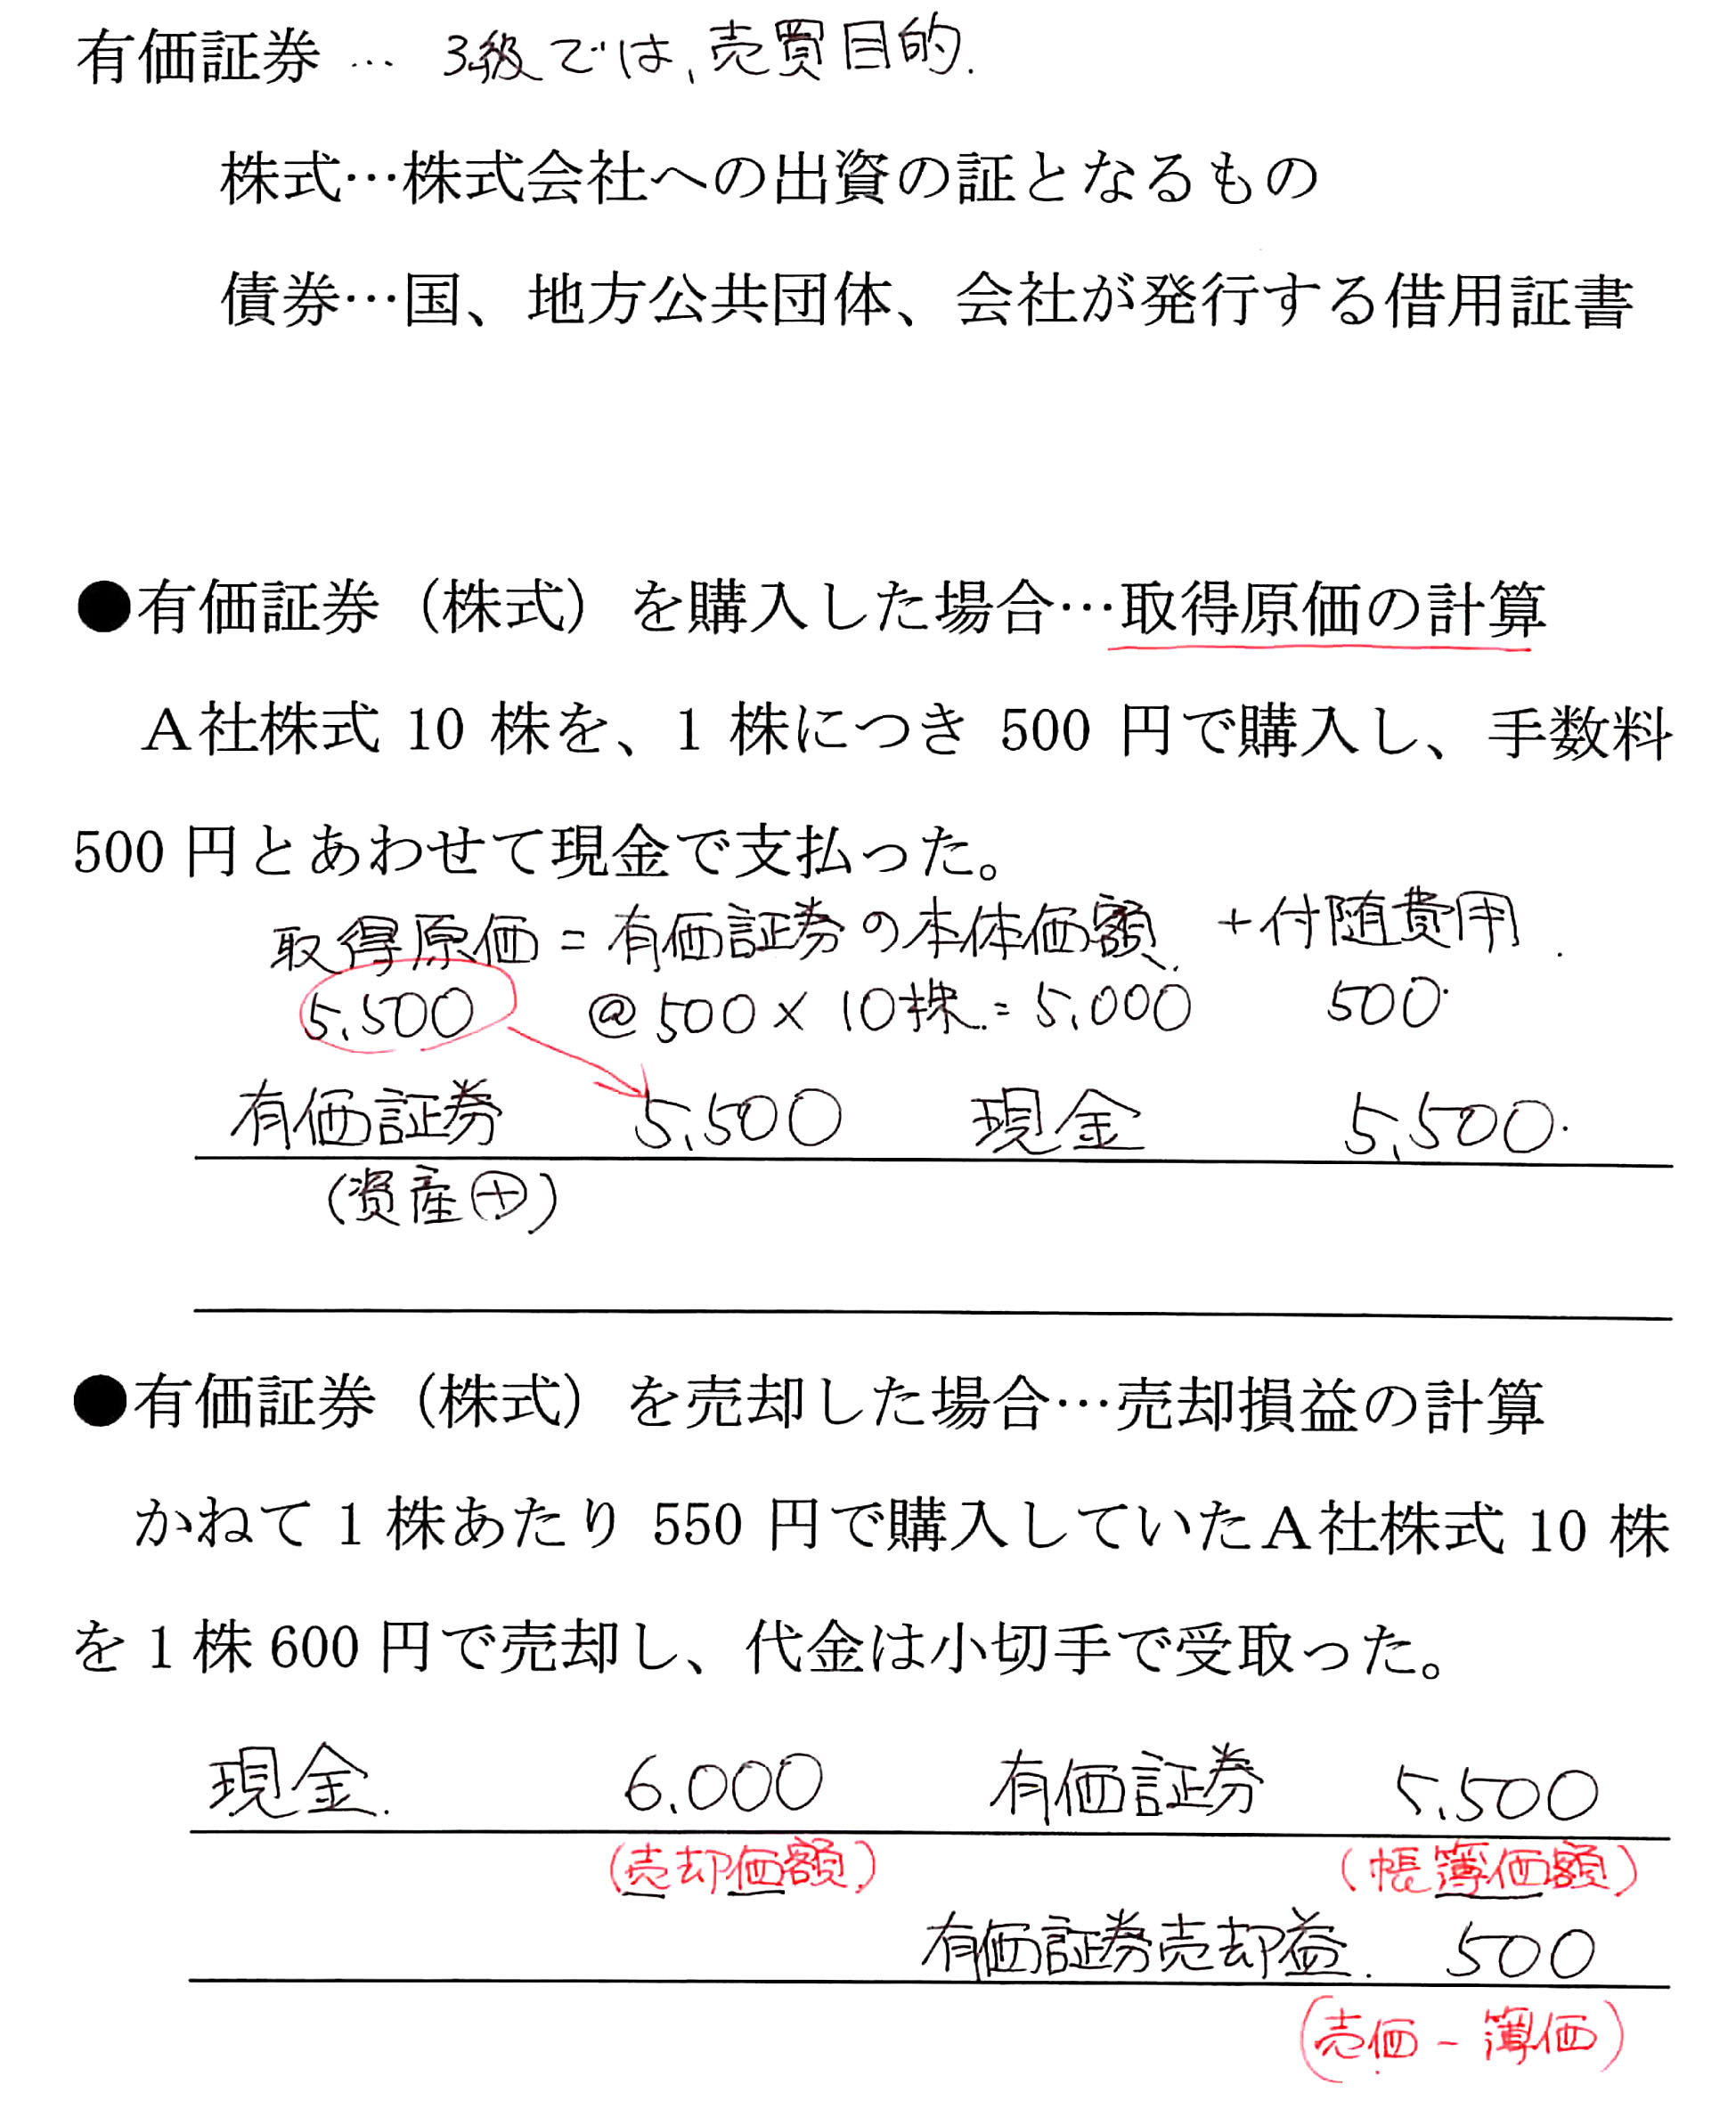 有価証券 … 3級では、売買目的.
株式…株式会社への出資の証となるもの
債券…国、地方公共団体、会社が発行する借用証書
●有価証券（株式）を購入した場合…取得原価の計算
A社株式 10 株を、1 株につき 500 円で購入し、手数料
500 円とあわせて現金で支払った。
取得原価 = 有価証券の本体価額 + 付随費用.
5,500 @500 × 10株 = 5,000 500
有価証券 5,500 現金 5,500
(資産⊕)
●有価証券（株式）を売却した場合…売却損益の計算
かねて 1 株あたり 550 円で購入していたA社株式 10 株
を 1 株 600 円で売却し、代金は小切手で受取った。
現金. 6,000 有価証券 5,500
(売却価額) (帳簿価額)
有価証券売却益. 500
(売価 - 簿価)